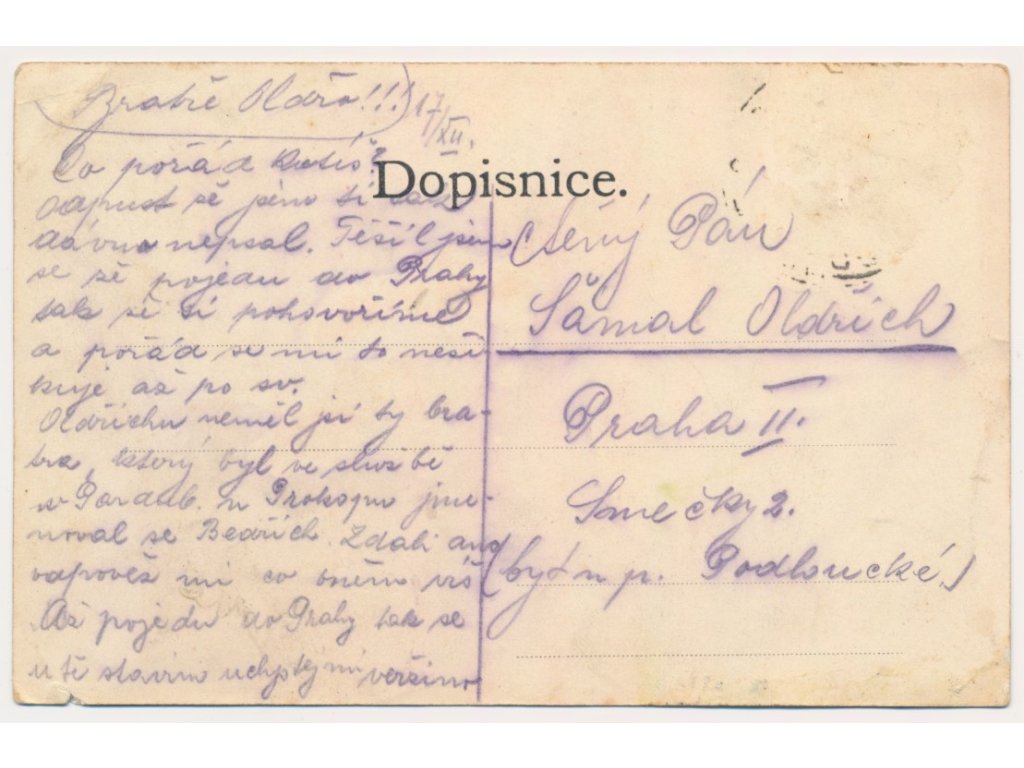 Bratře Oldřo!!! 17/XII.
Co pořád kutíš?
odpust sě jsme ti
dávno nepsal. Těšil jsem
se žě pojedu do Prahy
tak si ti pohovoříme
a pořád se mi to neši-
kuje až po sv.
Oldřichu neměl jsi ty bra-
tra, který byl ve službě
v Pardub. u Prokopu jme-
noval se Bedřich. Zdali ano
odpověz mi co oněm víš
Až pojedu do Prahy tak se
u tě stavím uchystej mi
Dopisnice.
Ctěný Pán
Šámal Oldřich
Praha II.
Smečky 2.
(byt n p. Podloucké.)